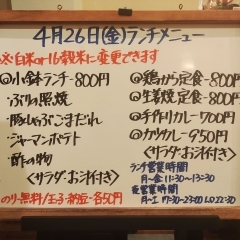 4月26日(金)ランチメニュー
※白米or16穀米に変更できます
◎小鉢ランチ-800円
・ぶりの照焼
・豚しゃぶごまだれ
・ジャーマンポテト
・酢の物
<サラダ・お汁付き>
◎鶏から定食-800円
◎生姜焼定食-800円
◎手作りカレー700円
◎カツカレー950円
<サラダ・お汁付き>
のり-無料/玉子・納豆-各50円
ランチ営業時間
月~金 11:30~13:30
夜営業時間
月~土 17:30~23:00 L.O 22:30